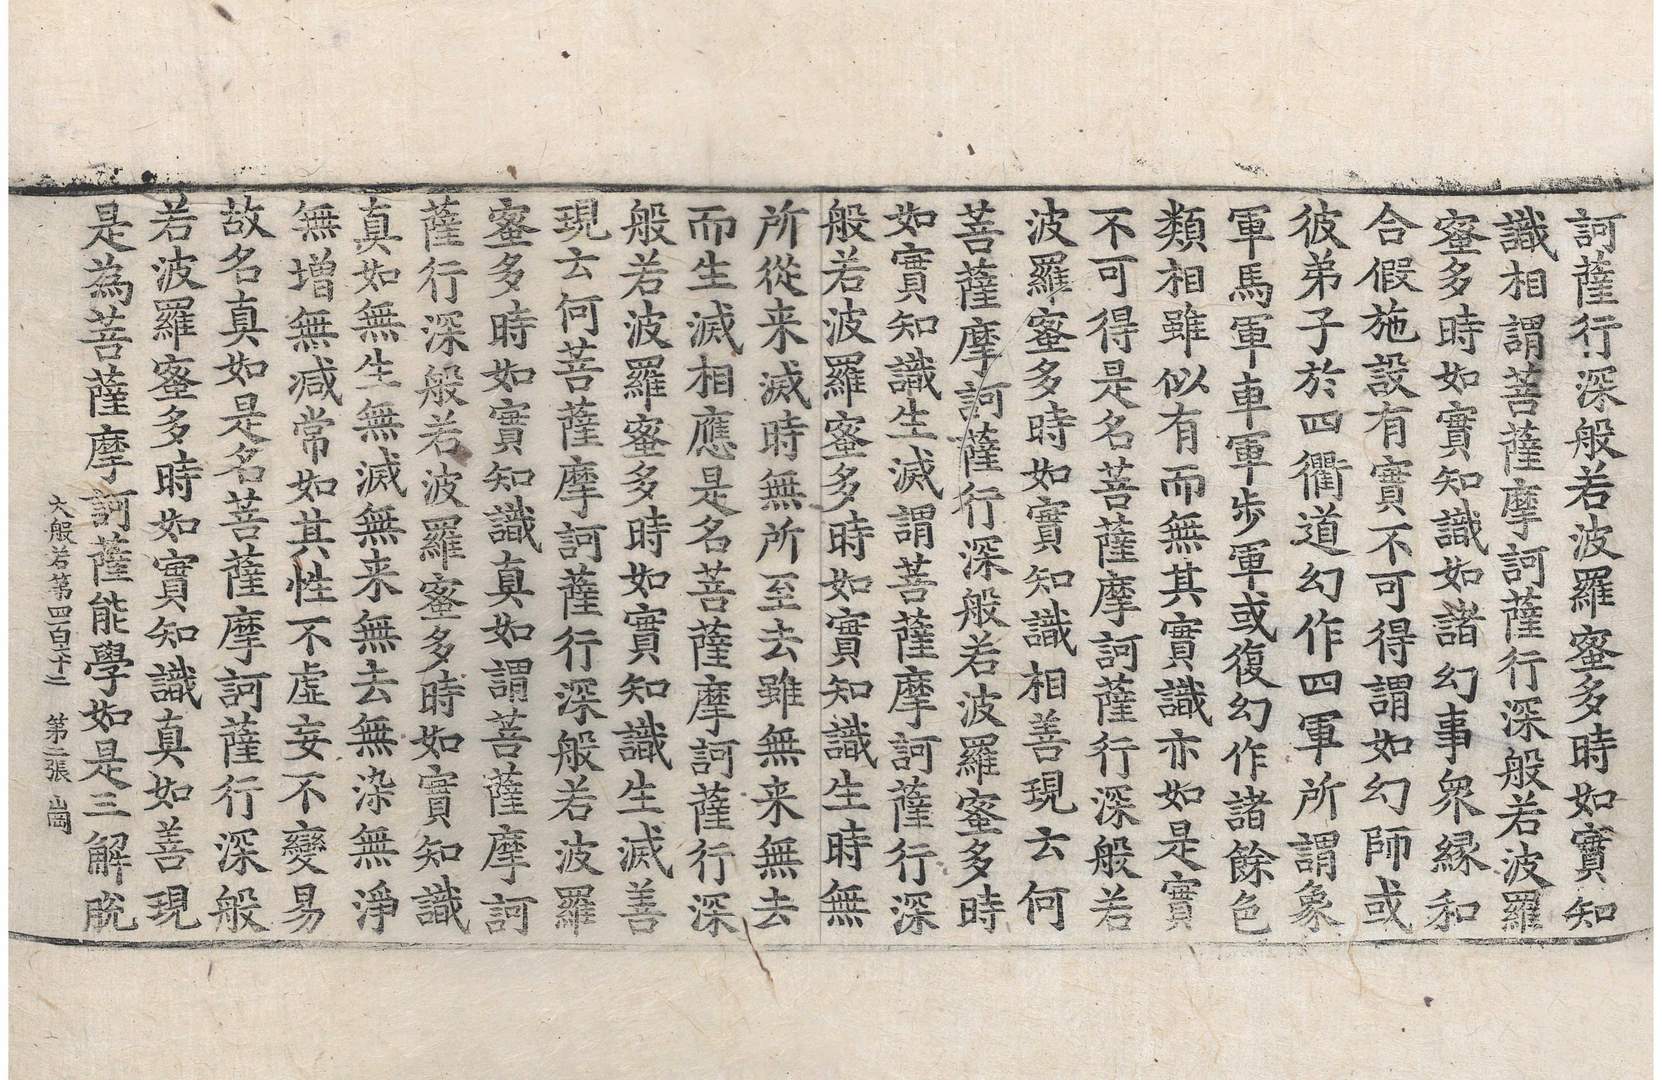 訶薩行深般若波羅蜜多時如實知
識相謂菩薩摩訶薩行深般若波羅
蜜多時如實知識如諸幻事衆緣和
合假施設有實不可得謂如幻師或
彼弟子於四衢道幻作四軍所謂象
軍馬軍車軍步軍或復幻作諸餘色
類相雖似有而無其實識亦如是實
不可得是名菩薩摩訶薩行深般若
波羅蜜多時如實知識相善現云何
菩薩摩訶薩行深般若波羅蜜多時
如實知識生滅謂菩薩摩訶薩行深
般若波羅蜜多時如實知識生時無
所從来滅時無所至去雖無来無去
而生滅相應是名菩薩摩訶薩行深
般若波羅蜜多時如實知識生滅善
現云何菩薩摩訶薩行深般若波羅
蜜多時如實知識真如謂菩薩摩訶
薩行深般若波羅蜜多時如實知識
真如無生無滅無来無去無染無淨
無增無減常如其性不虛妄不變易
故名真如是名菩薩摩訶薩行深般
若波羅蜜多時如實知識真如善現
是為菩薩摩訶薩能學如是三解脫
大般若第四百六十二 第二張 崗